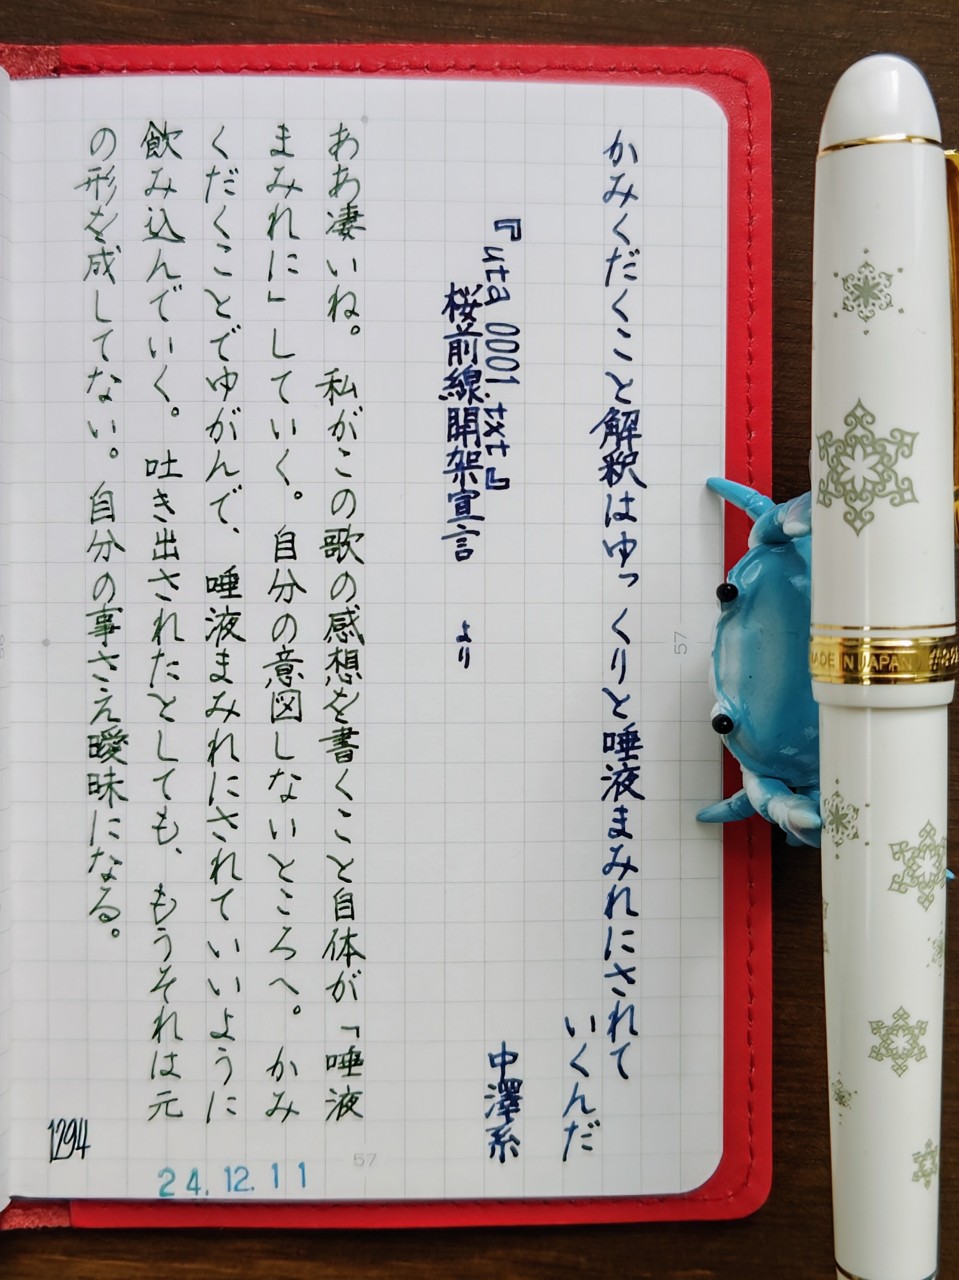 かみくだくこと解釈はゆっくりと唾液まみれにされて
いくんだ
中澤系
『uta 0001.txt』
桜前線開架宣言 より
ああ凄いね。私がこの歌の感想を書くこと自体が「唾液
まみれに」していく。自分の意図しないところへ。かみ
くだくことでゆがんで、唾液まみれにされていいように
飲み込んでいく。吐き出されたとしても、もうそれは元
の形を成してない。自分の事さえ曖昧になる。
1294
24.12.11
57
57
MADE IN JAPAN